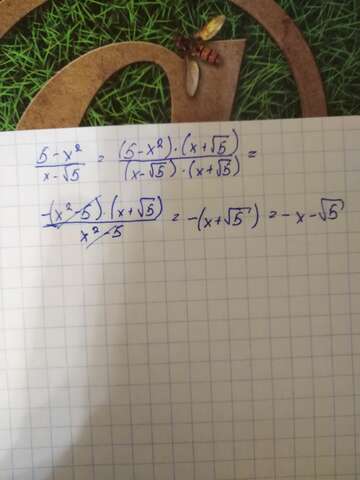 (5-x²)/(x-√5) = ((5-x²)·(x+√5))/((x-√5)·(x+√5)) =
(-(x²-5)·(x+√5))/(x²-5) = -(x+√5) = -x-√5